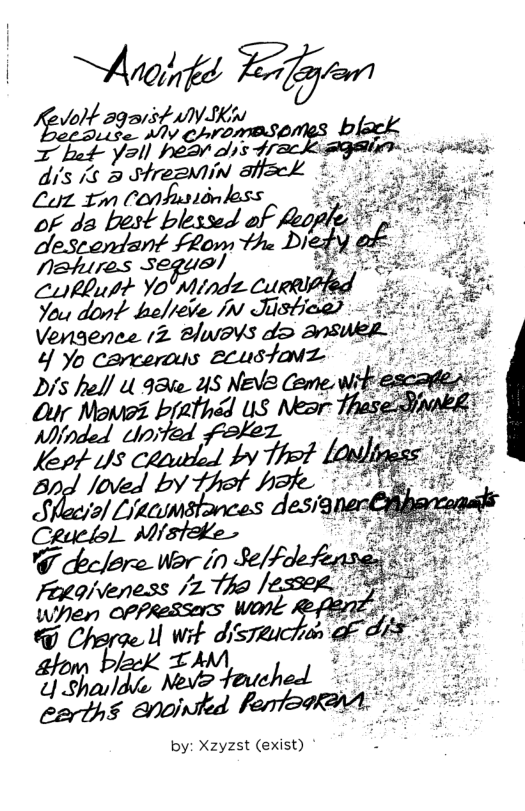 Anointed Pentagram
Revolt agaist My SKiN
because My chromasomes black
I bet yall hear dis track again
dis is a streaMiN attack
Cuz I'm confusionless
of da best blessed of People
descendant from the Diety of
natures sequal
CURRUPt Yo Mindz CURRUPted
You dont believe iN Justice
Vengence iz always da answer
4 Yo cancerous acustomz
Dis hell u gave us Neva Came wit escape
Our Mamaz birthed us Near these SiNNER
Minded United fakez
Kept US Crowded by that LoNliness
and loved by that hate
Special Circumstances designer enhancements
Crucial Mistake
I declare War in Self defense
Forgiveness iz tha lesser
When oppressors wont Repent
I Charge U wit distruction of dis
atom black I AM
U Shouldve Neva touched
earth's anointed PentagRaM
by: Xzyzst (exist)